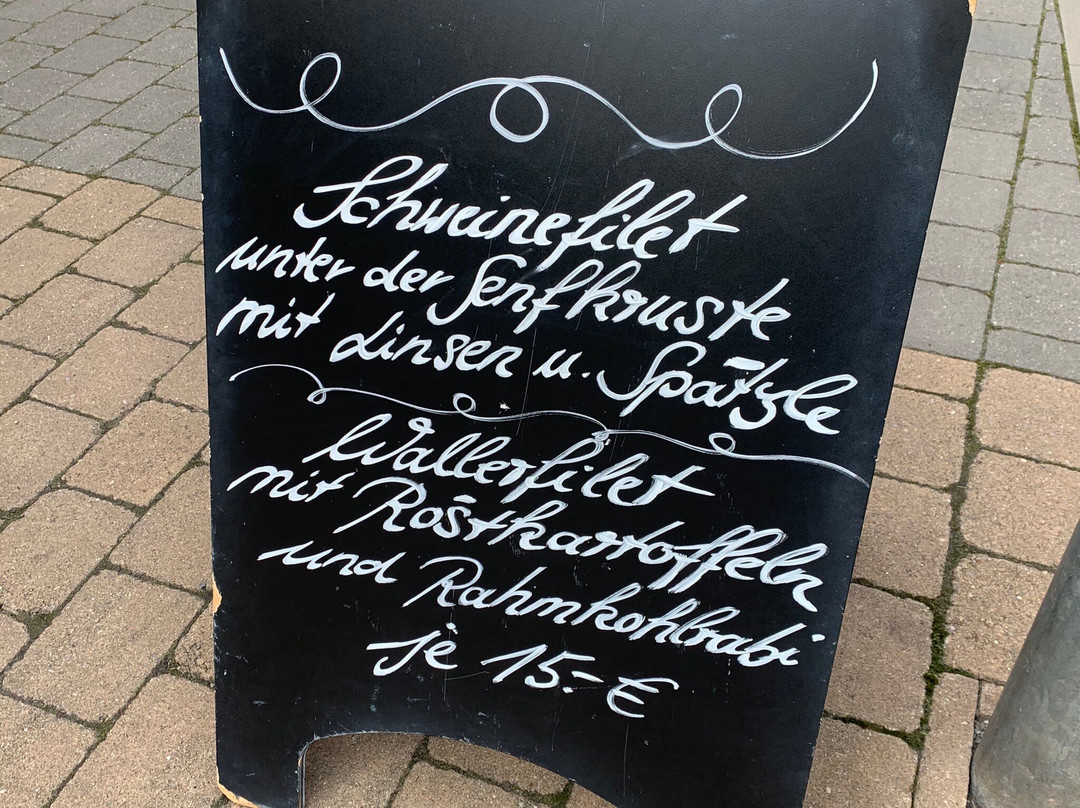 Schweinefilet
unter der Senfkruste
mit Linsen u. Spätzle
Wallerfilet
mit Röstkartoffeln
und Rahmkohlrabi
je 15.- €